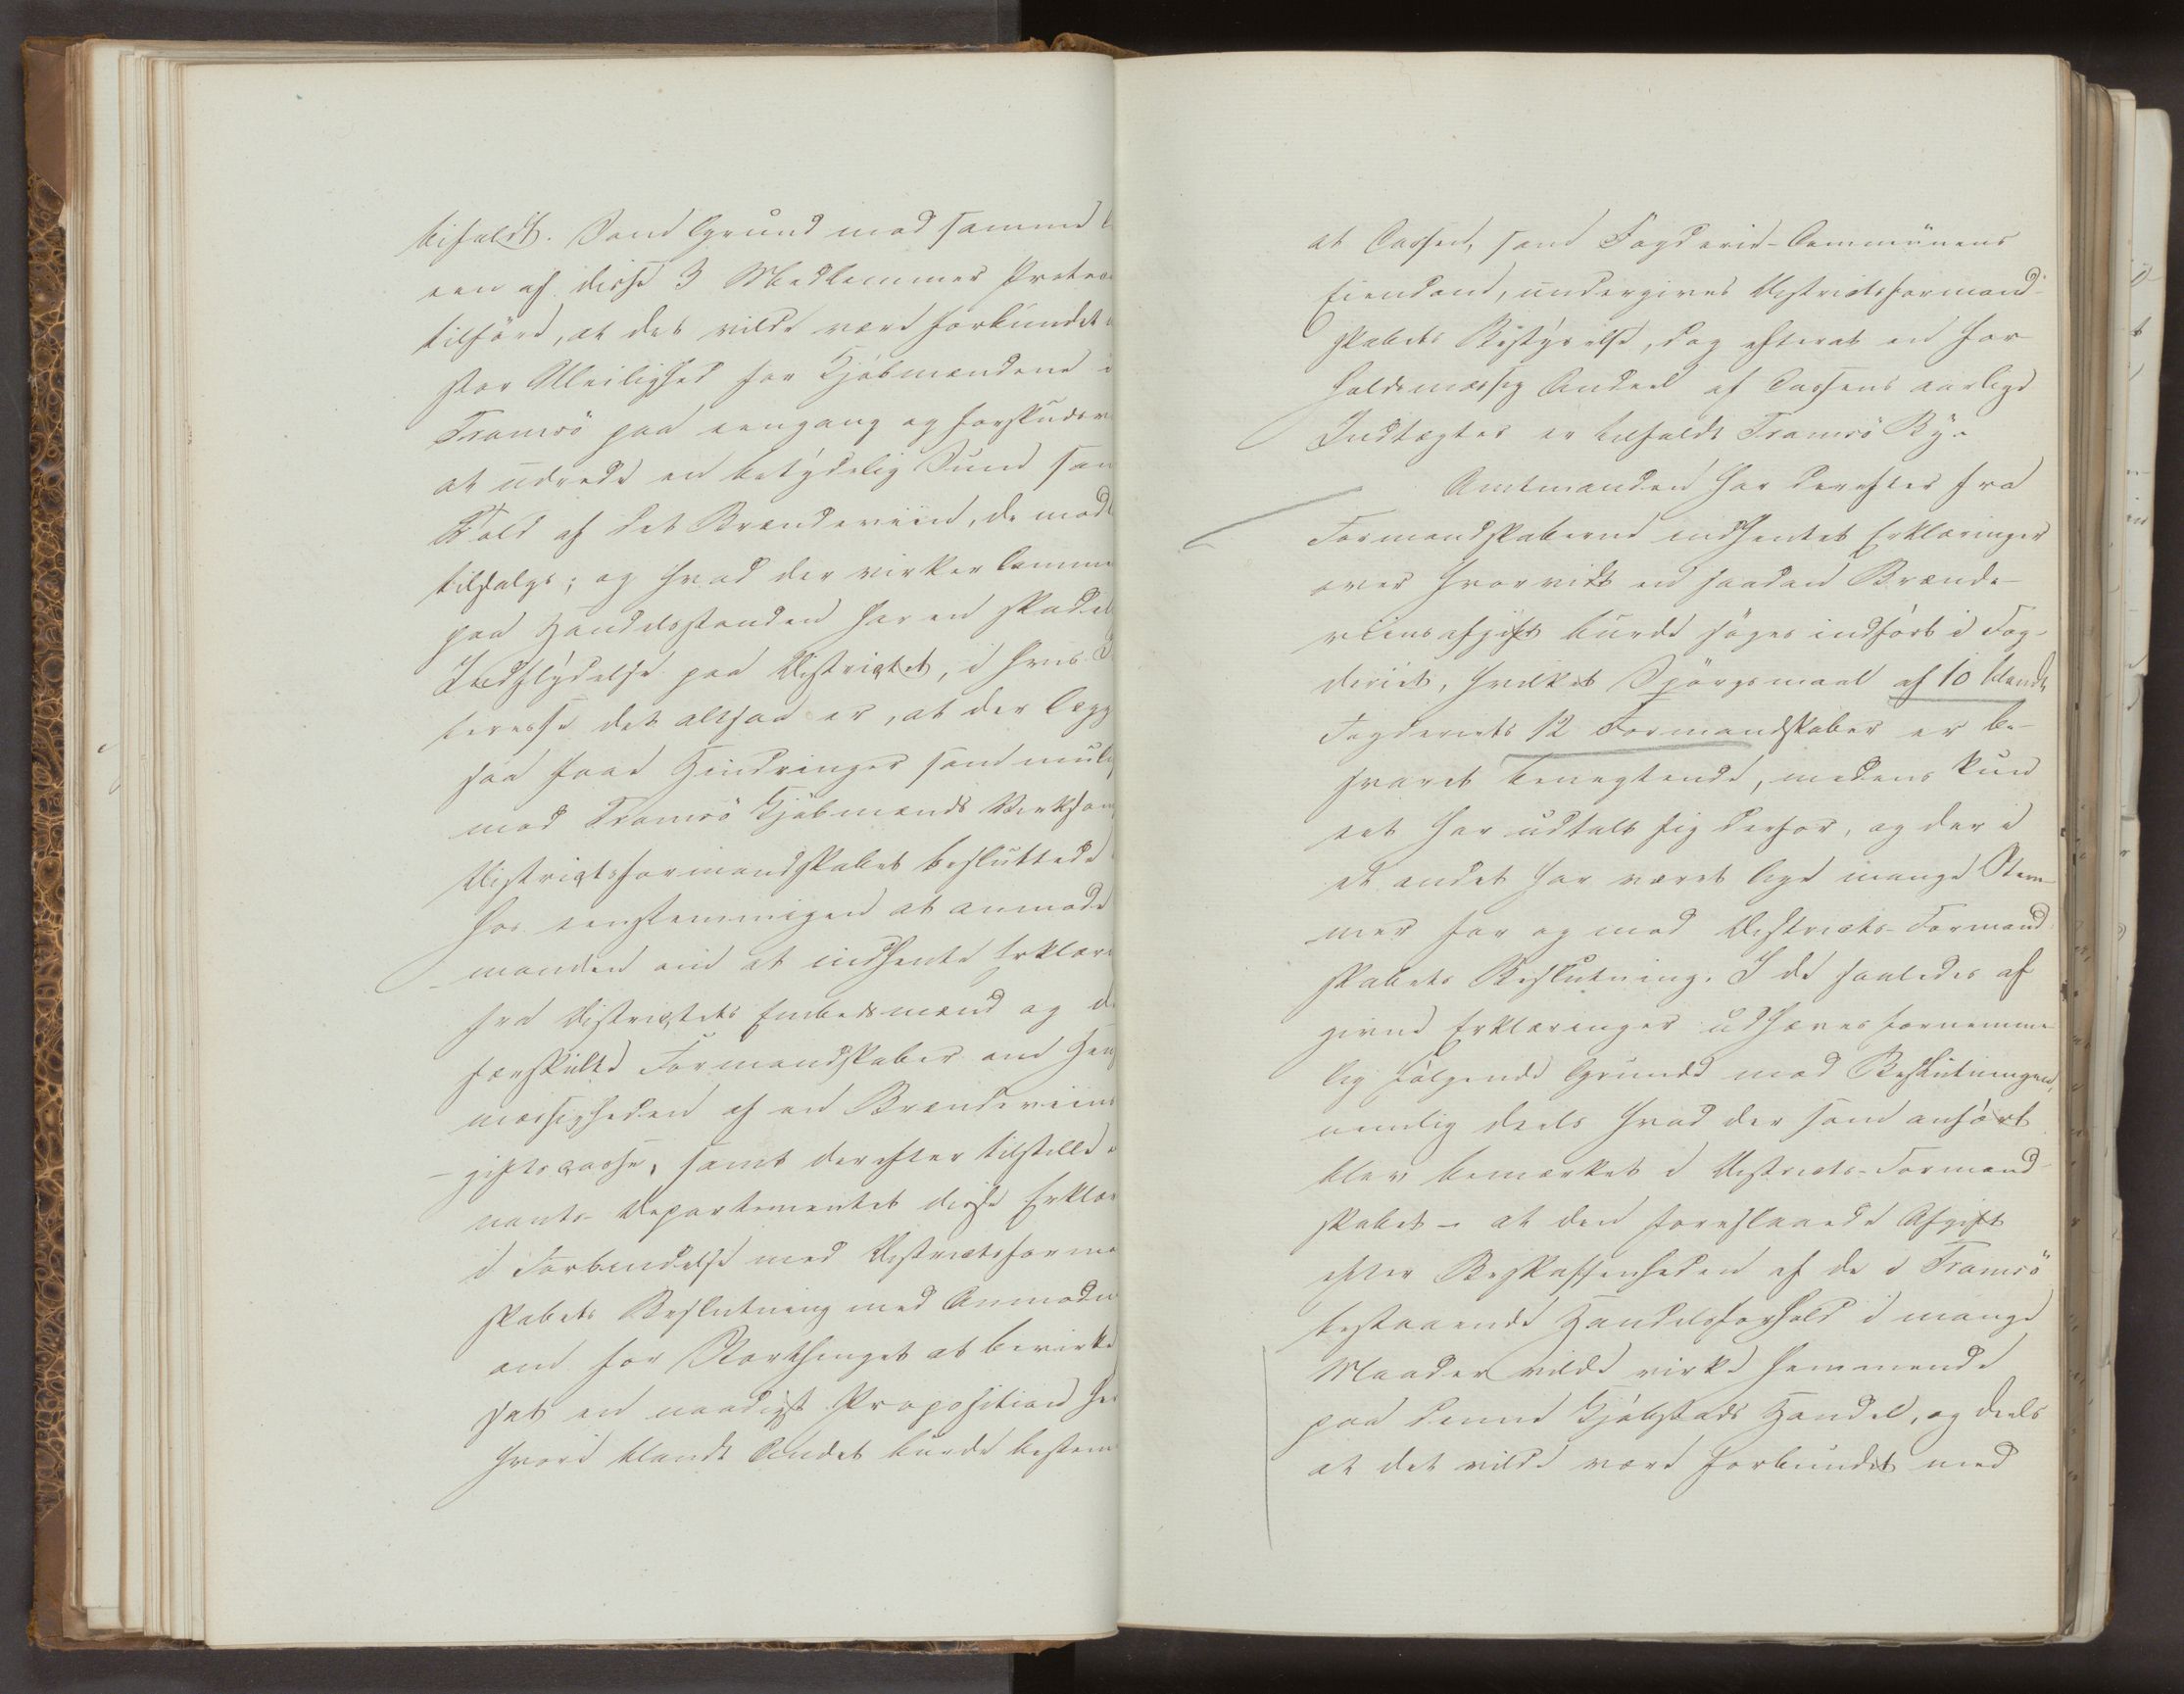 bifaldt. Som Grund mod samme
een af disse 3 Medlemmer Protoc
tilført, at det vilde være forbundet
stor Uleilighed for Kjøbmændene i
Tromsö paa eengang og forskudsv
at udrede en betydelig Sum som
Told af det Brændeviin, de mod
tilsalgs; og hvad der virker lamme
paa Handelsstanden har en skadel
Indflydelse paa Districtet, i hvis I
teresse det altsaa er, at der lægg
saa faae Hindringer som muli
mod Tromsö Kjøbmænds Virksom
Districtsformandskabet besluttede
hos eenstemmigen at anmode
manden om at indhente Erklæri
fra Districtets Embedsmænd og d
særskilte Formandskaber om Hen
mæssigheden af en Brændeviins
giftscasse, samt derefter tilstille
nants-Departementet disse Erklær
i Forbindelse med Districtsforma
skabets Beslutning med Anmodn
om for Storthinget at bevirke
sat en naadigst Proposition he
hvori blandt Andet burde bestem
at Cassen, som Fogderie-Communens
Eiendom, undergives Districtsformand-
skabets Bestyrelse, dog efterat en for-
holdsmæssig Andeel af Cassens aarlige
Indtægter er tilfaldt Tromsö By.
Amtmanden har derefter fra
Formandskaberne indhentet Erklæringer
over hvorvidt en saadan Brænde-
viinsafgift burde søges indført i Fog-
deriet, hvilket Spørgsmaal af 10 blandt
Fogderiets 12 Formandskaber er be-
svaret benegtende, medens kun
eet har udtalt sig derfor, og der i
et andet har været lige mange Stem-
mer for og mod Districts-Formand-
skabets Beslutning. I de saaledes af-
givne Erklæringer udhæves fornemme-
lig følgende Grunde mod Beslutningen,
nemlig deels hvad der som anført
blev bemærket i Districts-Formand-
skabet – at den foreslaaede Afgift
efter Beskaffenheden af de i Tromsö
bestaaende Handelsforhold i mange
Maader vilde virke hemmende
paa denne Kjøbstads Handel, og deels
at det vilde være forbundet med